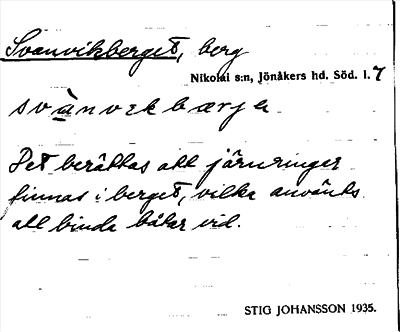 Svanvikberget, berg
Nikolai s:n, Jönåkers hd. Söd. l. 7
svànvekbærje
Det berättas att järnringer
finnas i berget, vilka använts
att binda båtar vid.
STIG JOHANSSON 1935.